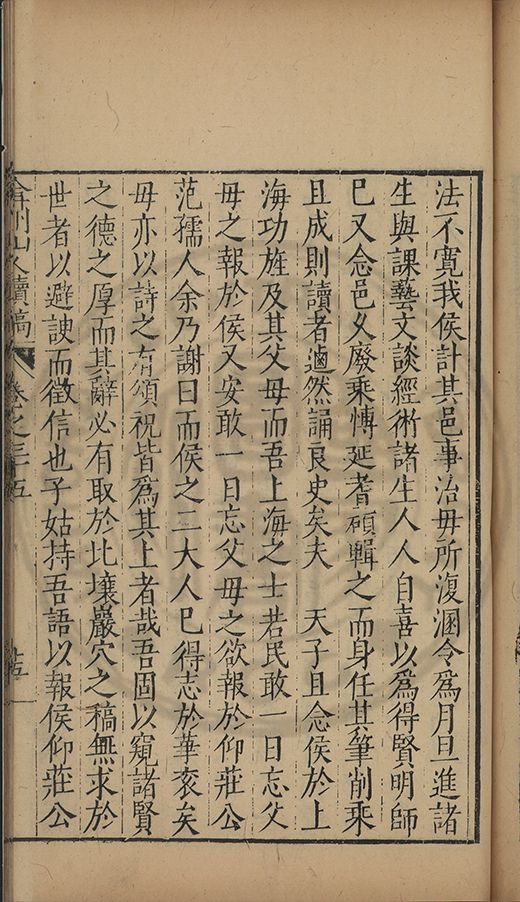 法不寬我侯計其邑事治毋所溷令爲月旦進諸
生與課藝文談經術諸生人人自喜以爲得賢明師
已又念邑乂廢乘慱延耆碩輯之而身任其筆削乘
且成則讀者遒然誦良史矣夫　天子且念侯於上
海功旌及其父毋而吾上海之士若民敢一日忘父
毋之報於侯又安敢一日忘父毋之欲報於仰莊公
范孺人余乃謝曰而侯之二大人已得志於華衮矣
毋亦以詩之有頌祝皆爲其上者哉吾固以窺諸賢
之德之厚而其辭必有取於壤巖穴之稿無求於
世者以避諛而徵信也子姑持吾語以報侯仰莊公
弇州山人續稿 卷之三五